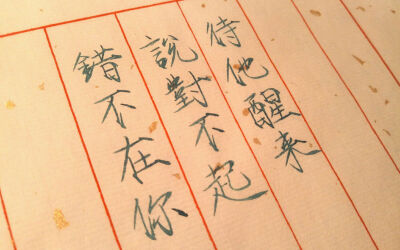 待他醒来
說對不起
錯不在你